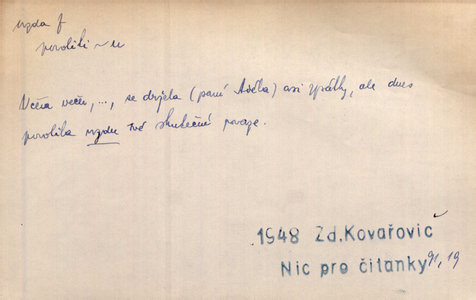 uzda f
povoliti ~u
Včera večer, ..., se držela (paní Adéla) asi zpátky, ale dnes
povolila uzdu své skutečné povaze.
1948 Zd. Kovařovič
Nic pro čítanky 91, 19